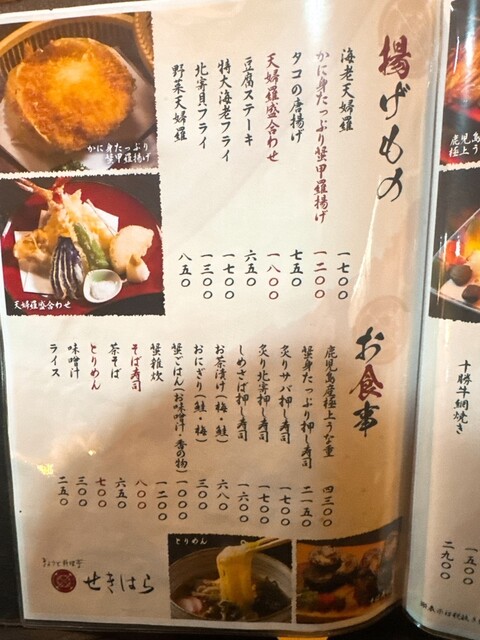 揚げもの
海老天婦羅 一七〇〇
かに身たっぷり蟹甲羅揚げ 一二〇〇
タコの唐揚げ 七五〇
天婦羅盛合わせ 一八〇〇
豆腐ステーキ 六五〇
特大海老フライ 一七〇〇
北寄貝フライ 一三〇〇
野菜天婦羅 八五〇
かに身たっぷり
蟹甲羅揚げ
天婦羅盛合わせ
お食事
鹿児島産極上うな重 四三〇〇
蟹身たっぷり押し寿司 二一五〇
炙りサバ押し寿司 一七〇〇
炙り北寄押し寿司 一七〇〇
しめさば押し寿司 一六〇〇
お茶漬け(鮭・梅) 六八〇
おにぎり(鮭・梅) 三〇〇
蟹ごはん(お味噌汁・香の物) 一〇〇〇
蟹雑炊 一二〇〇
そば寿司 八〇〇
茶そば 六五〇
とりめん 七〇〇
味噌汁 三〇〇
ライス 二五〇
とりめん
せきはら
鹿児島
極上う
十勝牛網焼き
一五〇〇
二九〇〇